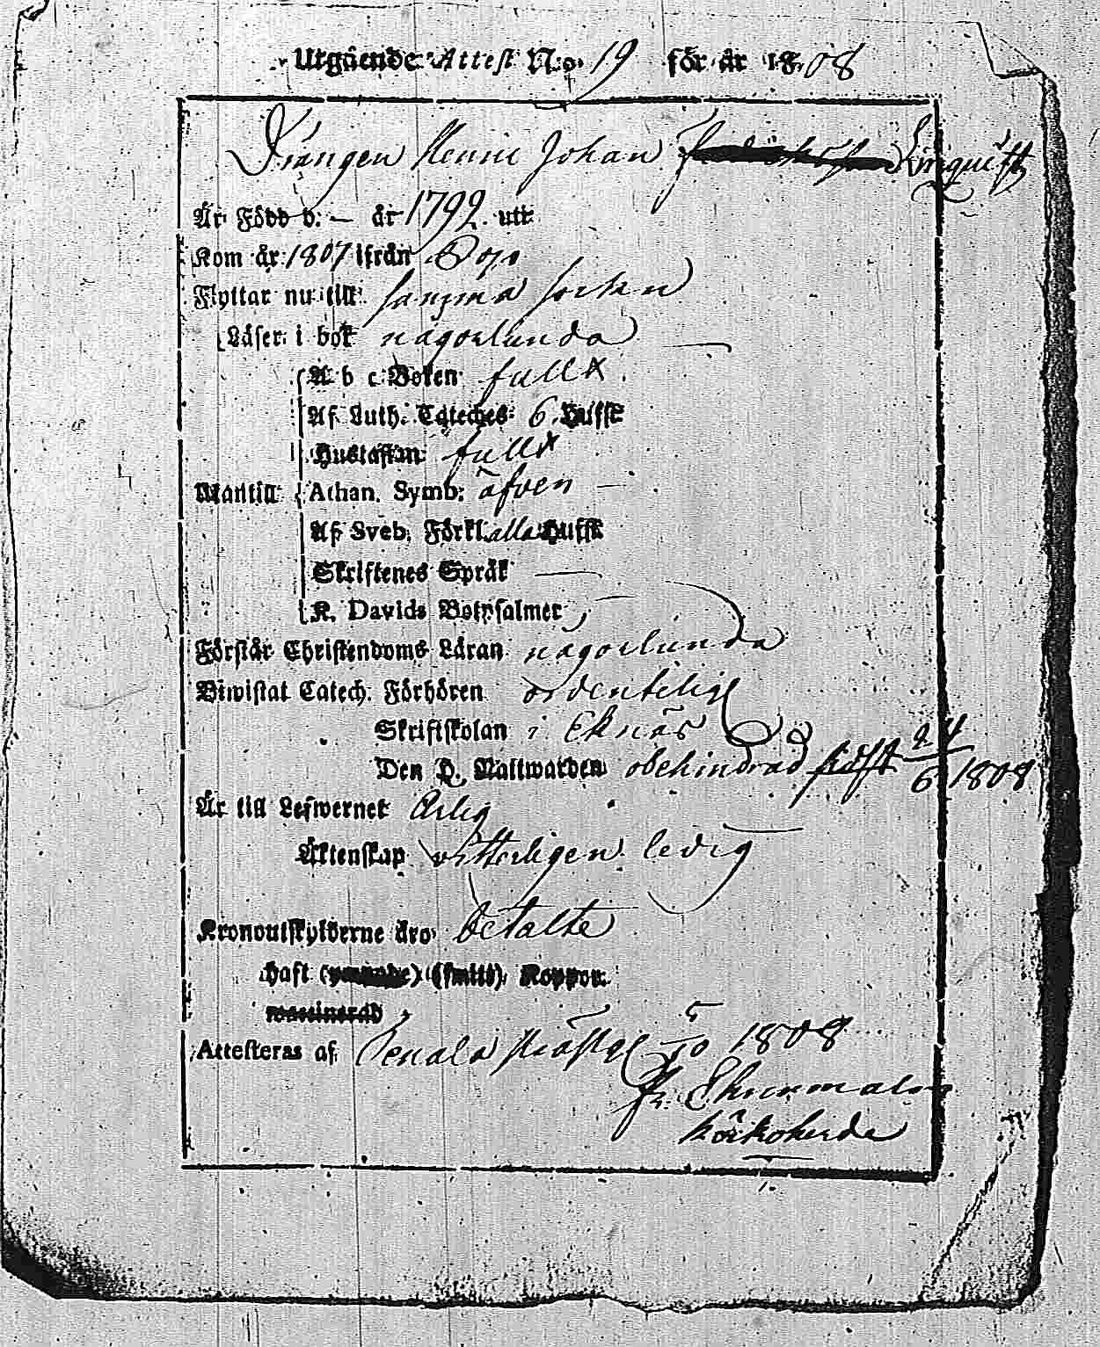 Utgående Attest N:o 19 för år 1808
Drängen Henric Johan Linquist
Är Född d. — år 1792 utt
Kom år 1807 ifrån
Flyttar nu till samma socken
Läser i bok någorlunda
A b c Boken fullt
Af Luth. Cateches 6 Hufst
Hustaflan fullt
Mantill Athan. Symb. äfven
Af Sveb. Förkl. alla Hufst
Skriftenes Språk —
K. Davids Botpsalmer
Förstår Christendoms Läran någorlunda
Biwistat Catech. Förhören ordentelige
Skriftskolan i Eknäs
Den H. Nattwarden obehindrad 24/6 1808
Är till Lefwernet Ärlig
Äktenskap witterligen ledig
Kronoutskylderne äro betalte
haft (smitt) Koppor
waccinerad
Attesteras af Tenala 5/10 1808
Ekman
Körkoherde